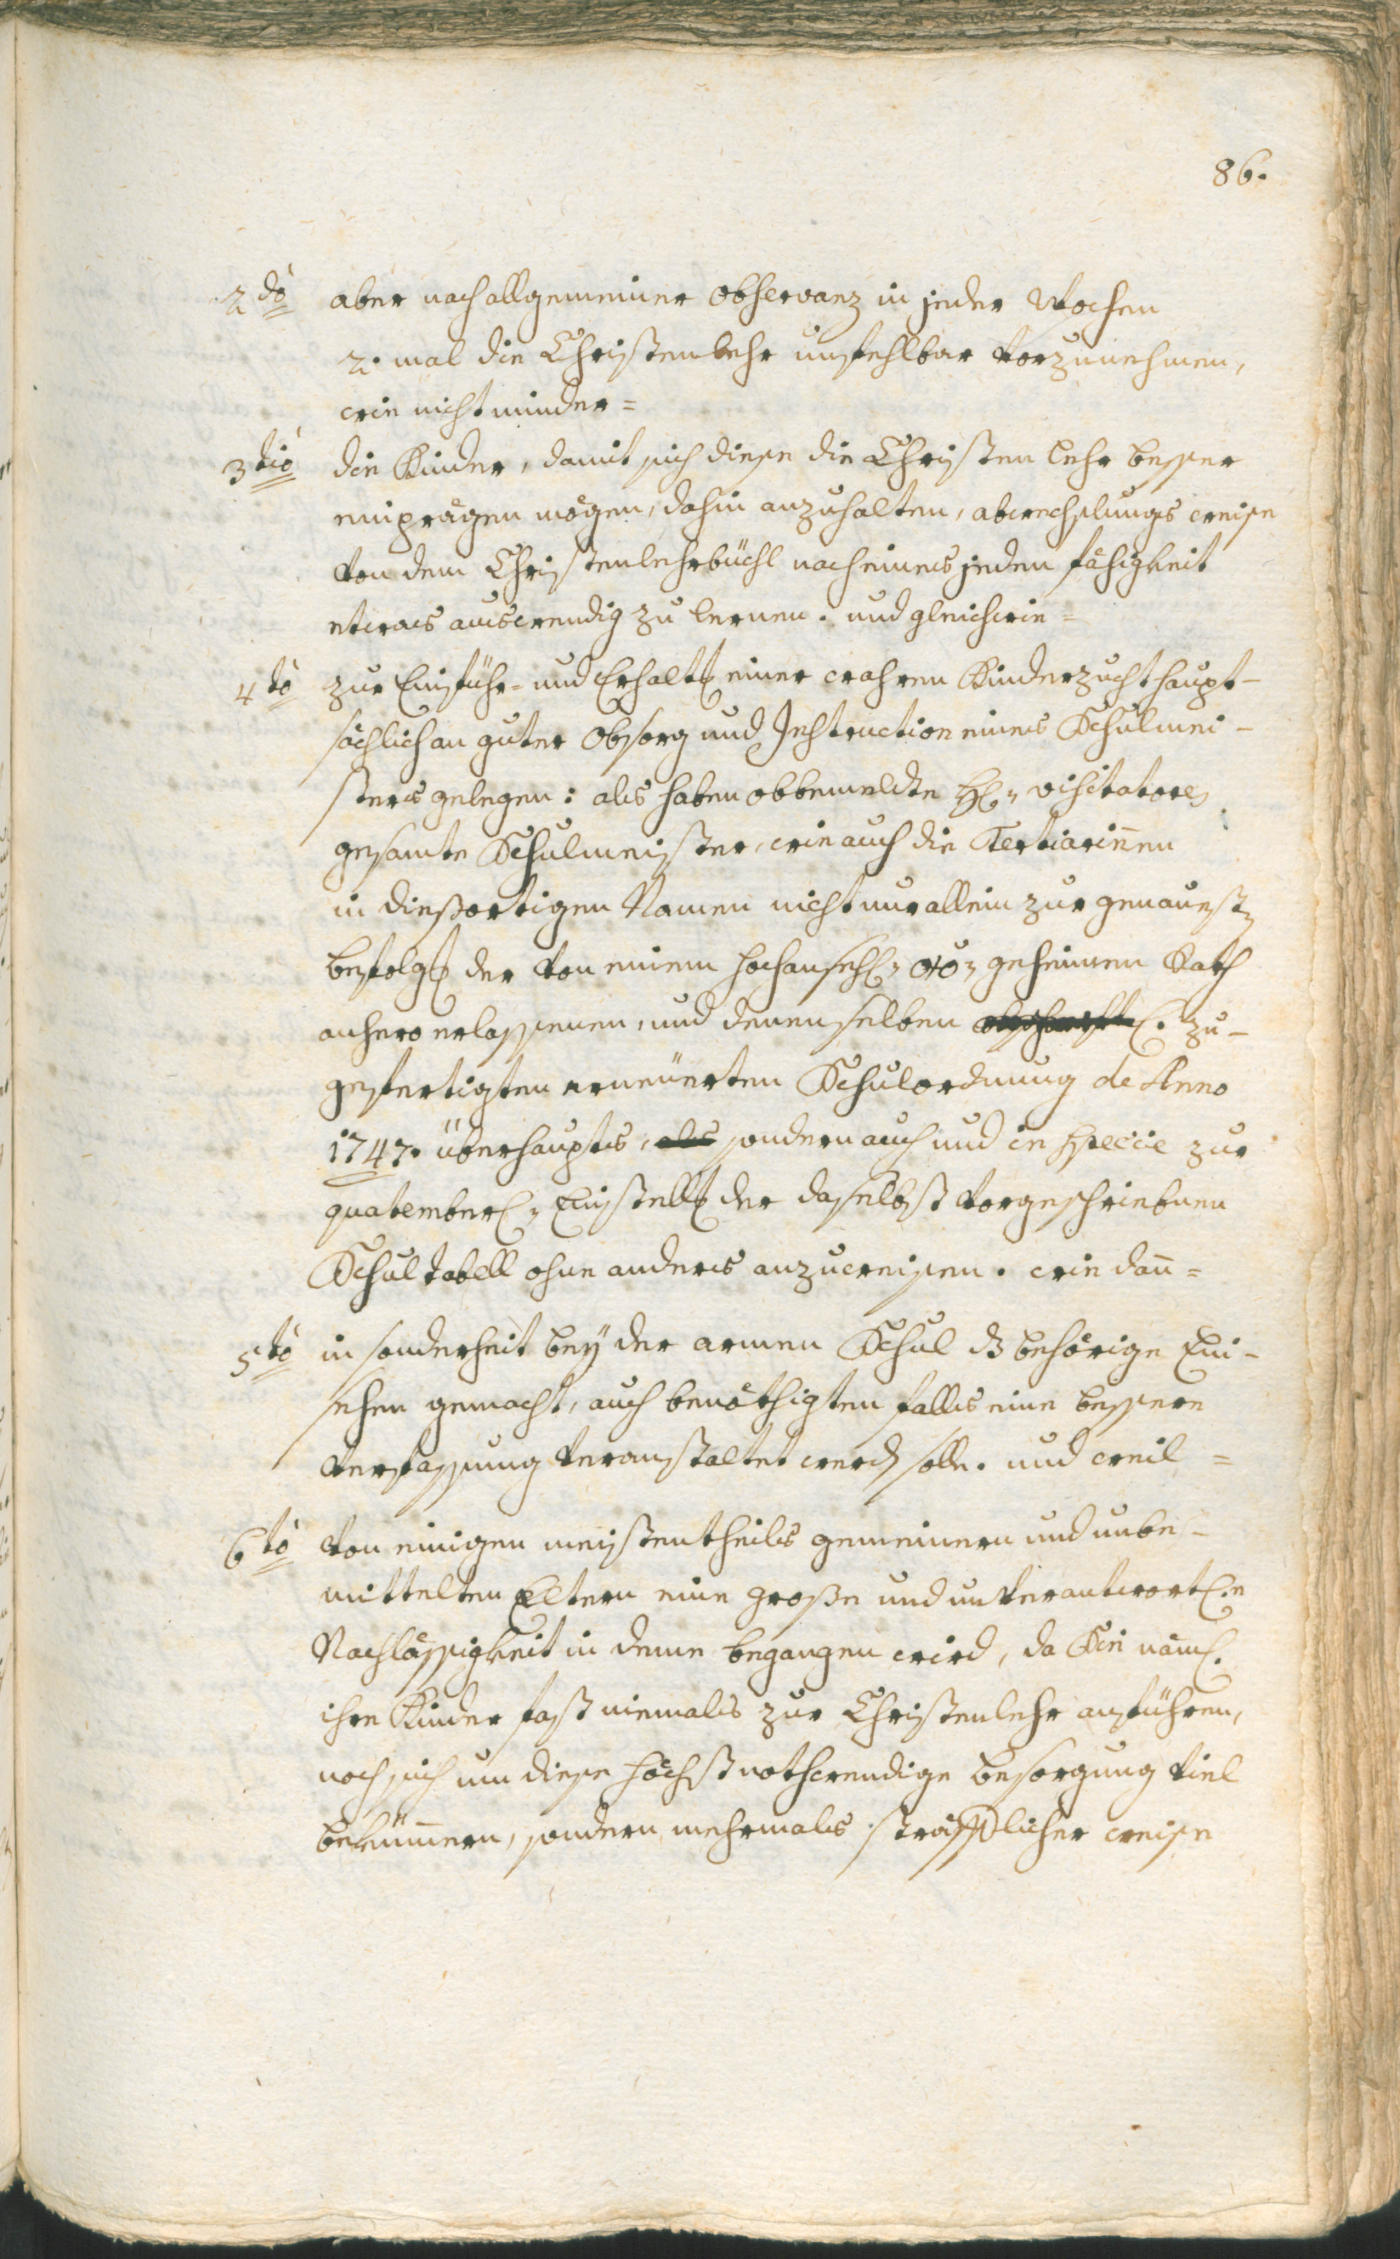 86.
2do aber nach allgemeiner Observanz in jeder Wochen
2. mal die Christenlehr unfehlbar vorzunehmen,
wie nicht minder =
3tio die Kinder, damit sich diese die Christenlehr besser
einprägen mögen, dahin anzuhalten, abwechslungs weise
von dem Christenlehrbüchl nach eines jeden fähigkeit
etwas auswendig zu lernen. und gleichwie =
4to zur Einführ- und Erhaltg einer wahren Kinderzucht haupt-
sächlich an guter Obsorg und Instruction eines Schulmei-
sters gelegen: als haben obbemeldte HH. Visitatores
gesamte Schulmeister, wie auch die Tertiarinen
in diesortigen Namen nicht nur allein zur genauest
befolgg der von einem hochansehl. geheimen Rath
anhero erlassenen, und denenselben zu-
gefertigten erneüerten Schulordnung de Anno
1747. überhaupts, als sondern auch und in specie zur
quatemberl. Einstellg der daselbst vorgeschriebnen
Schul tabell ohne anders anzuweisen. wie dan =
5to in sonderheit bey der armen Schul dz behörige Ein-
sehen gemacht, auch benöthigten falls eine bessere
Verfassung veranstaltet werd solle. und weil =
6to von einigen meistentheils gemeinern und unbe-
mittelten Eltern eine große und unverantwortl.e
Nachlässigkeit in deme begangen wird, da Sie näml.
ihre Kinder fast niemals zur Christenlehr anführen,
noch sich um diese höchst nothwendige besorgung viel
bekümern, sondern mehrmals sträfflicher weise